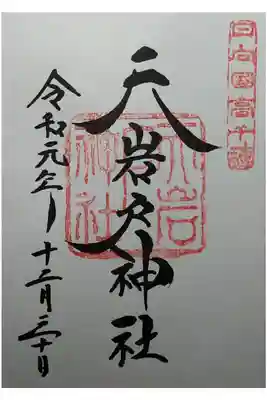 日向國高千穂
天岩戸神社
天岩戸神社
令和元年十二月三十日